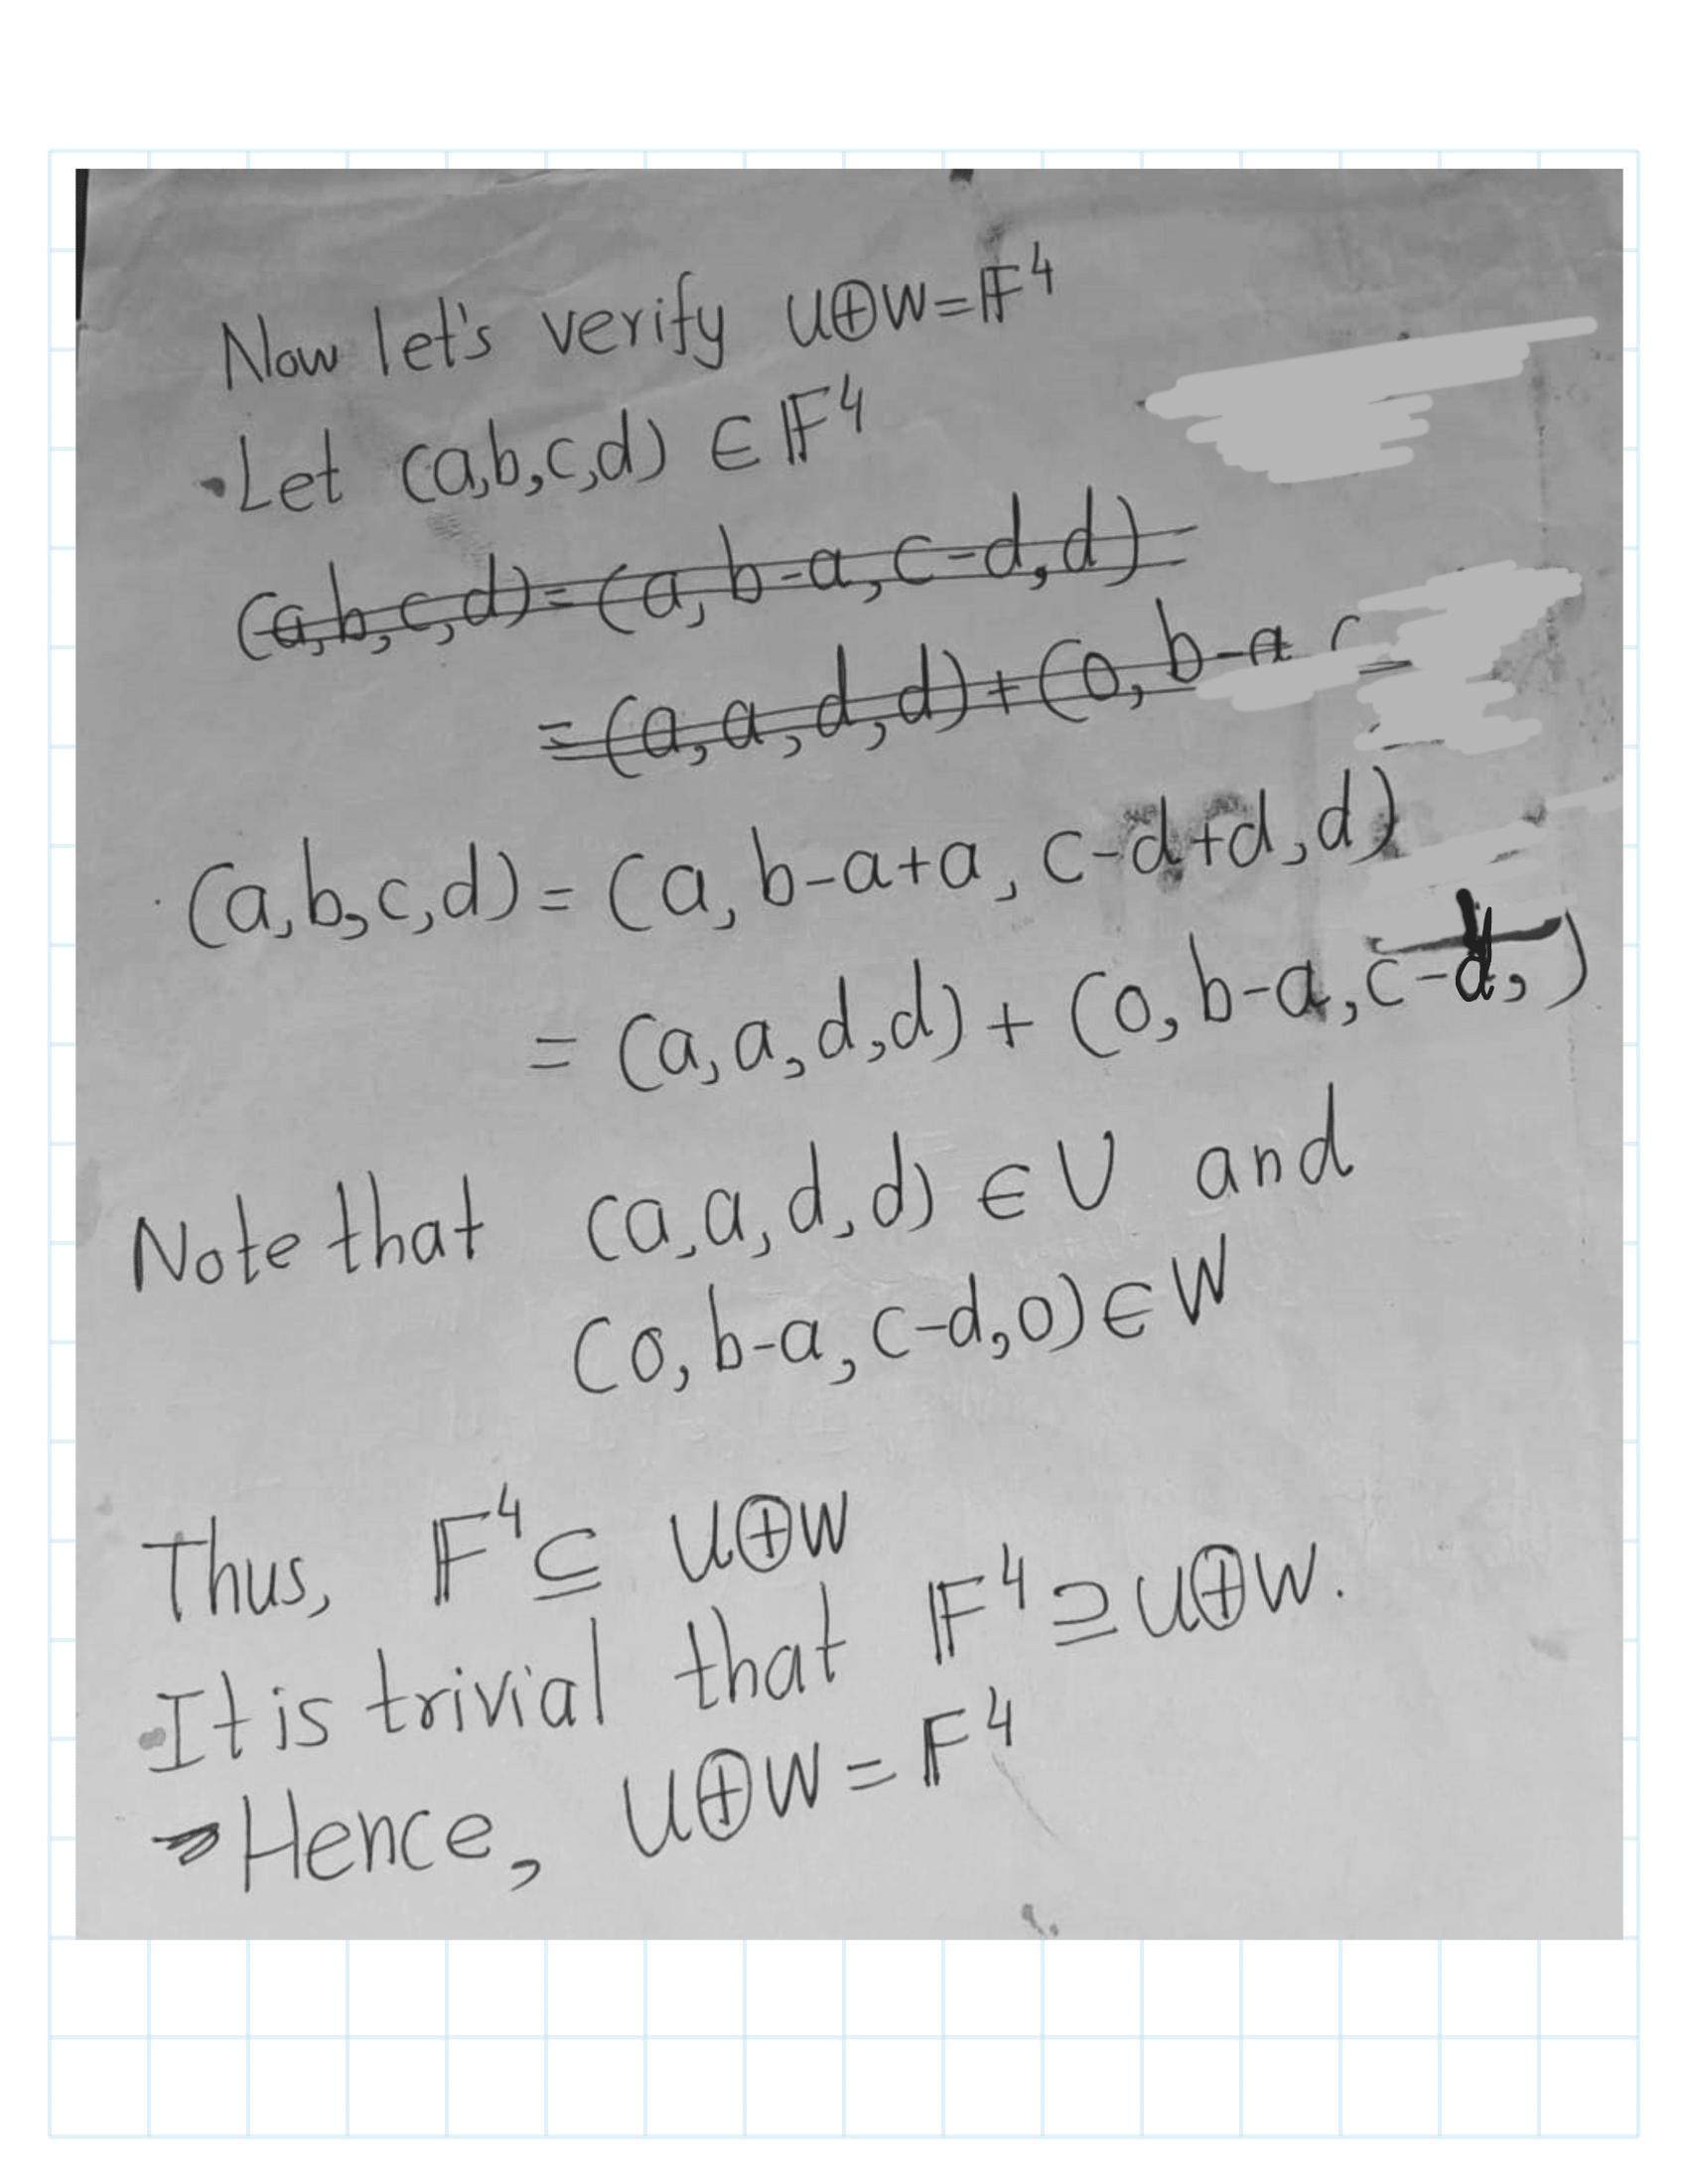 Now let's verify U⊕W=𝔽⁴
•Let (a,b,c,d) ∈ 𝔽⁴
(a,b,c,d)=(a, b-a, c-d,d)=
=(a,a,d,d)+(0, b-a
(a,b,c,d)=(a, b-a+a, c-d+d,d)
=(a,a,d,d)+(0,b-a,c-d, )
Note that (a,a,d,d) ∈ U and
(0,b-a,c-d,0)∈W
Thus, 𝔽⁴⊆ U⊕W
•It is trivial that 𝔽⁴⊇U⊕W.
Hence, U⊕W=𝔽⁴